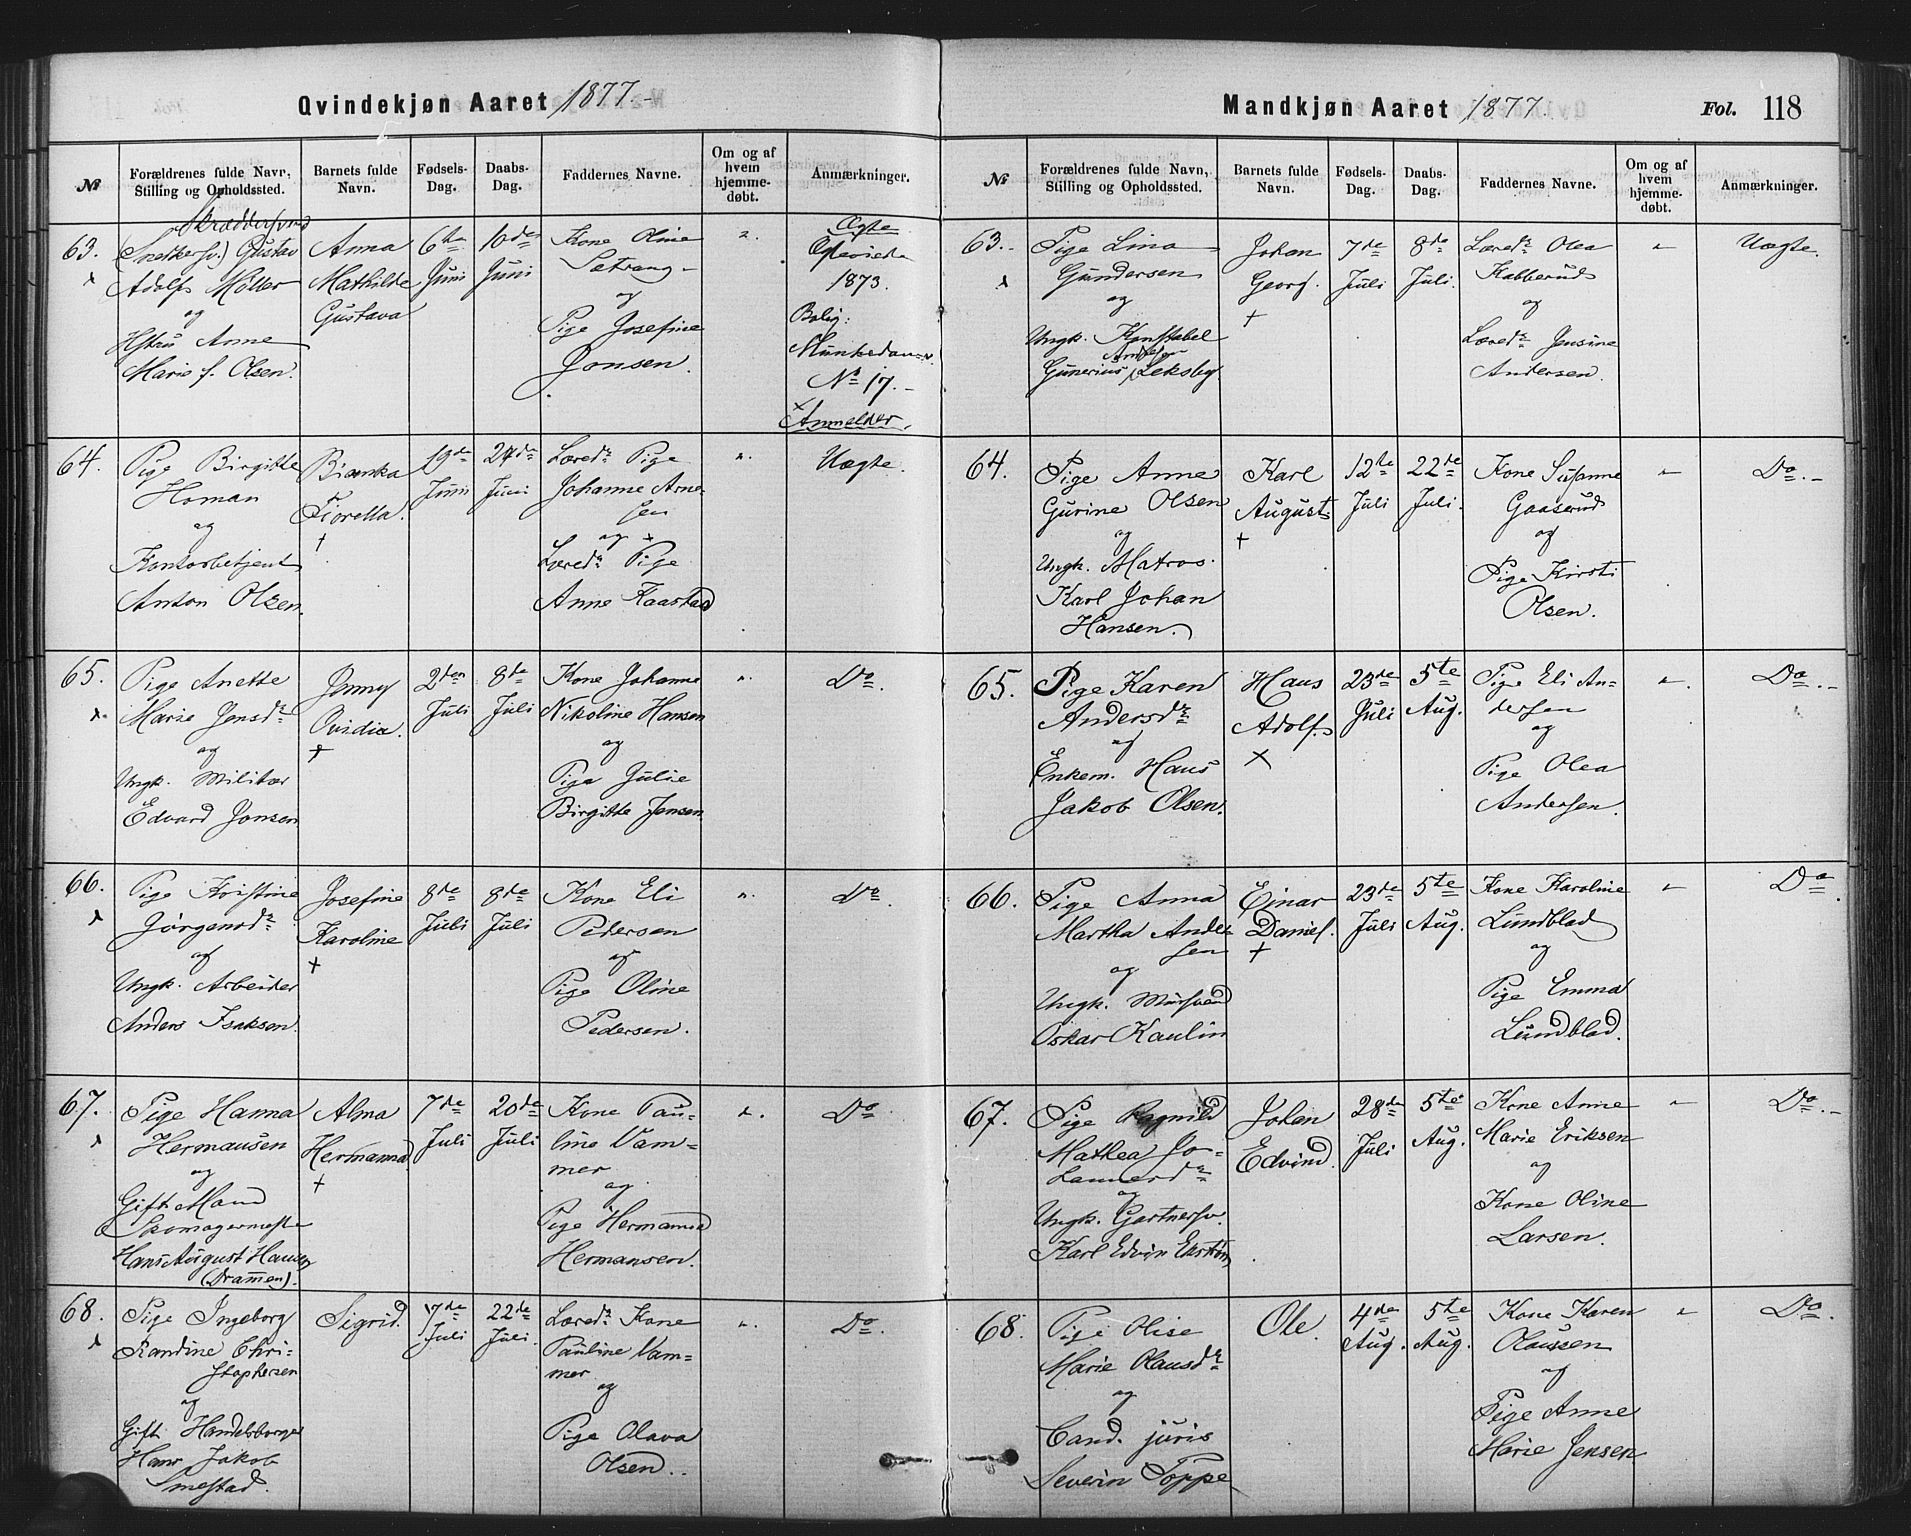 Qvindekjøn Aaret 1877.-
№
Forældrenes fulde Navn,
Stilling og Opholdssted.
Barnets fulde
Navn.
Fødsels-
Dag.
Daabs-
Dag.
Faddernes Navne.
Om og af
hvem
hjemme-
døbt.
Anmærkninger.
63.
Skræddersvend
(Snedkersv.) Gustav
Adolf Møller
og
Hstru Anne
Marie f. Olsen.
Anna
Mathilde
Gustava
6te
Juni
10de
Juni
Kone Oline
Sætrang
og
Pige Josefine
Jonsen.
Ægte
Copuleret
1873.
Bolig:
Munkedam-v.
No 17.-
Anmelder.
64.
Pige Birgitte
Homan
og
Kontorbetjent
Anton Olsen.
Bianka
Fioretta.
†
19de
Juni
24de
Juni
Læred. Pige
Johanne Arne-
sen
og
Læred. Pige
Anne Kaastad
Uægte.
65.
Pige Anette
Marie Jensdr
og
Ungk. Militær
Edvard Jonsen
Jenny
Ovidia.
†
2den
Juli
8de
Juli
Kone Johanne
Nikoline Hansen
og
Pige Julie
Birgitte Jensen
Do.
66.
Pige Kristine
Jørgensdr
og
Ungk. Arbeider
Anders Isaksen.
Josefine
Karoline
†
8de
Juli
8de
Juli
Kone Eli
Pedersen
og
Pige Oline
Pedersen.
Do.
67.
Pige Hanna
Hermansen
og
Gift Mand
Skomagermester
Hans August Hansen
(Drammen).
Alma
Hermanna
†
7de
Juli
20de
Juli
Kone Pau-
line Vam-
mer
og
Pige Hermanna
Hermansen.
Do
68.
Pige Ingeborg
Randine Chri-
stophersen
og
Gift Handelsborger
Hans Jakob
Smestad.
Sigrid.
7de
Juli
22de
Juli.
Læred. Kone
Pauline Vam-
mer
og
Pige Olava
Olsen.
Do.
Mandkjøn Aaret 1877.
Fol. 118
№
Forældrenes fulde Navn,
Stilling og Opholdssted.
Barnets fulde
Navn.
Fødsels-
Dag.
Daabs-
Dag.
Faddernes Navne.
Om og af
hvem
hjemme-
døbt.
Anmærkninger.
63.
Pige Lina
Gundersen
og
Ungk. Konstabel
Andersen
Gunerius Leksby.
Johan
Georg.
†
7de
Juli
8de
Juli.
Læred. Olea
Kabberud
og
Læred. Jensine
Andersen.
Uægte.
64.
Pige Anne
Gurine Olsen
og
Ungk. Matros
Karl Johan
Hansen.
Karl
August
†
12te
Juli
22de
Juli.
Kone Susanne
Gaaserud
og
Pige Kirsti
Olsen.
Do.-
65.
Pige Karen
Andersdr
og
Enkem. Hans
Jakob Olsen.
Hans
Adolf.
×
23de
Juli
5te
Aug.
Pige Eli An-
dersen
og
Pige Olea
Andersen.
Do.-
66.
Pige Anna
Martha Ander-
sen
og
Ungk. Mursvend
Oskar Kaulin
Einar
Daniel.
†
23de
Juli
5te
Aug.
Kone Karoline
Lundblad
og
Pige Emma
Lundblad.
Do
67.
Pige Ragnild
Mathea Jo-
hannesdr
og
Ungk. Gartnersv.
Karl Edvin Ekstrøm
Johan
Edvind.
28de
Juli
5te
Aug.
Kone Anne
Marie Eriksen
og
Kone Oline
Larsen.
Do.-
68.
Pige Olise
Marie Olausdr
og
Cand. juris
Severin Poppe
Ole.
4de
Aug.
5te
Aug.
Kone Karen
Olaussen
og
Pige Anne
Marie Jensen
Do.